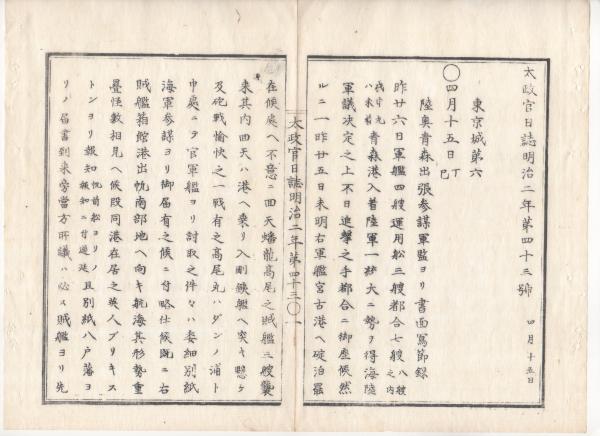 太政官日誌明治二年第四十三號
四月十五日
東京城第六
〇四月十五日丁巳
陸奥青森出張參謀軍監ヨリ書面寫節録
昨廿六日軍艦四艘運用松三艘都合七艘八艘之内
青森港入着陸軍一抔大ニ勢ヲ得海陸
軍議决定之上不日進撃之手都合ニ御座候然
ルニ一昨廿五日未明右軍艦宮古港ヘ碇泊罷
太政官日誌明治二年第四十三〇一
在候處ヘ不意ニ回天蟠龍高尾之賊艦三艘襲
来其内回天ハ港ヘ乗リ入剛鐵艦ヘ突キ懸ケ
及砲戰愉快之一戰有之高尾丸ハダンノ浦ト
申處ニテ官軍艦ヨリ討取之件々ハ委細別紙
海軍參謀ヨリ御届有之候ニ付略仕候既ニ右
賊艦箱館港出帆南部地ヘ向キ航海其形勢重
疊怪敷相見ヘ候段同港在居之英人ブリキス
トンヨリ報知帆前松ヨリノ報知ニ付遅延且別紙八戸藩ヨ
リノ届書到来旁當方評議ハ必ス賊艦ヨリ先